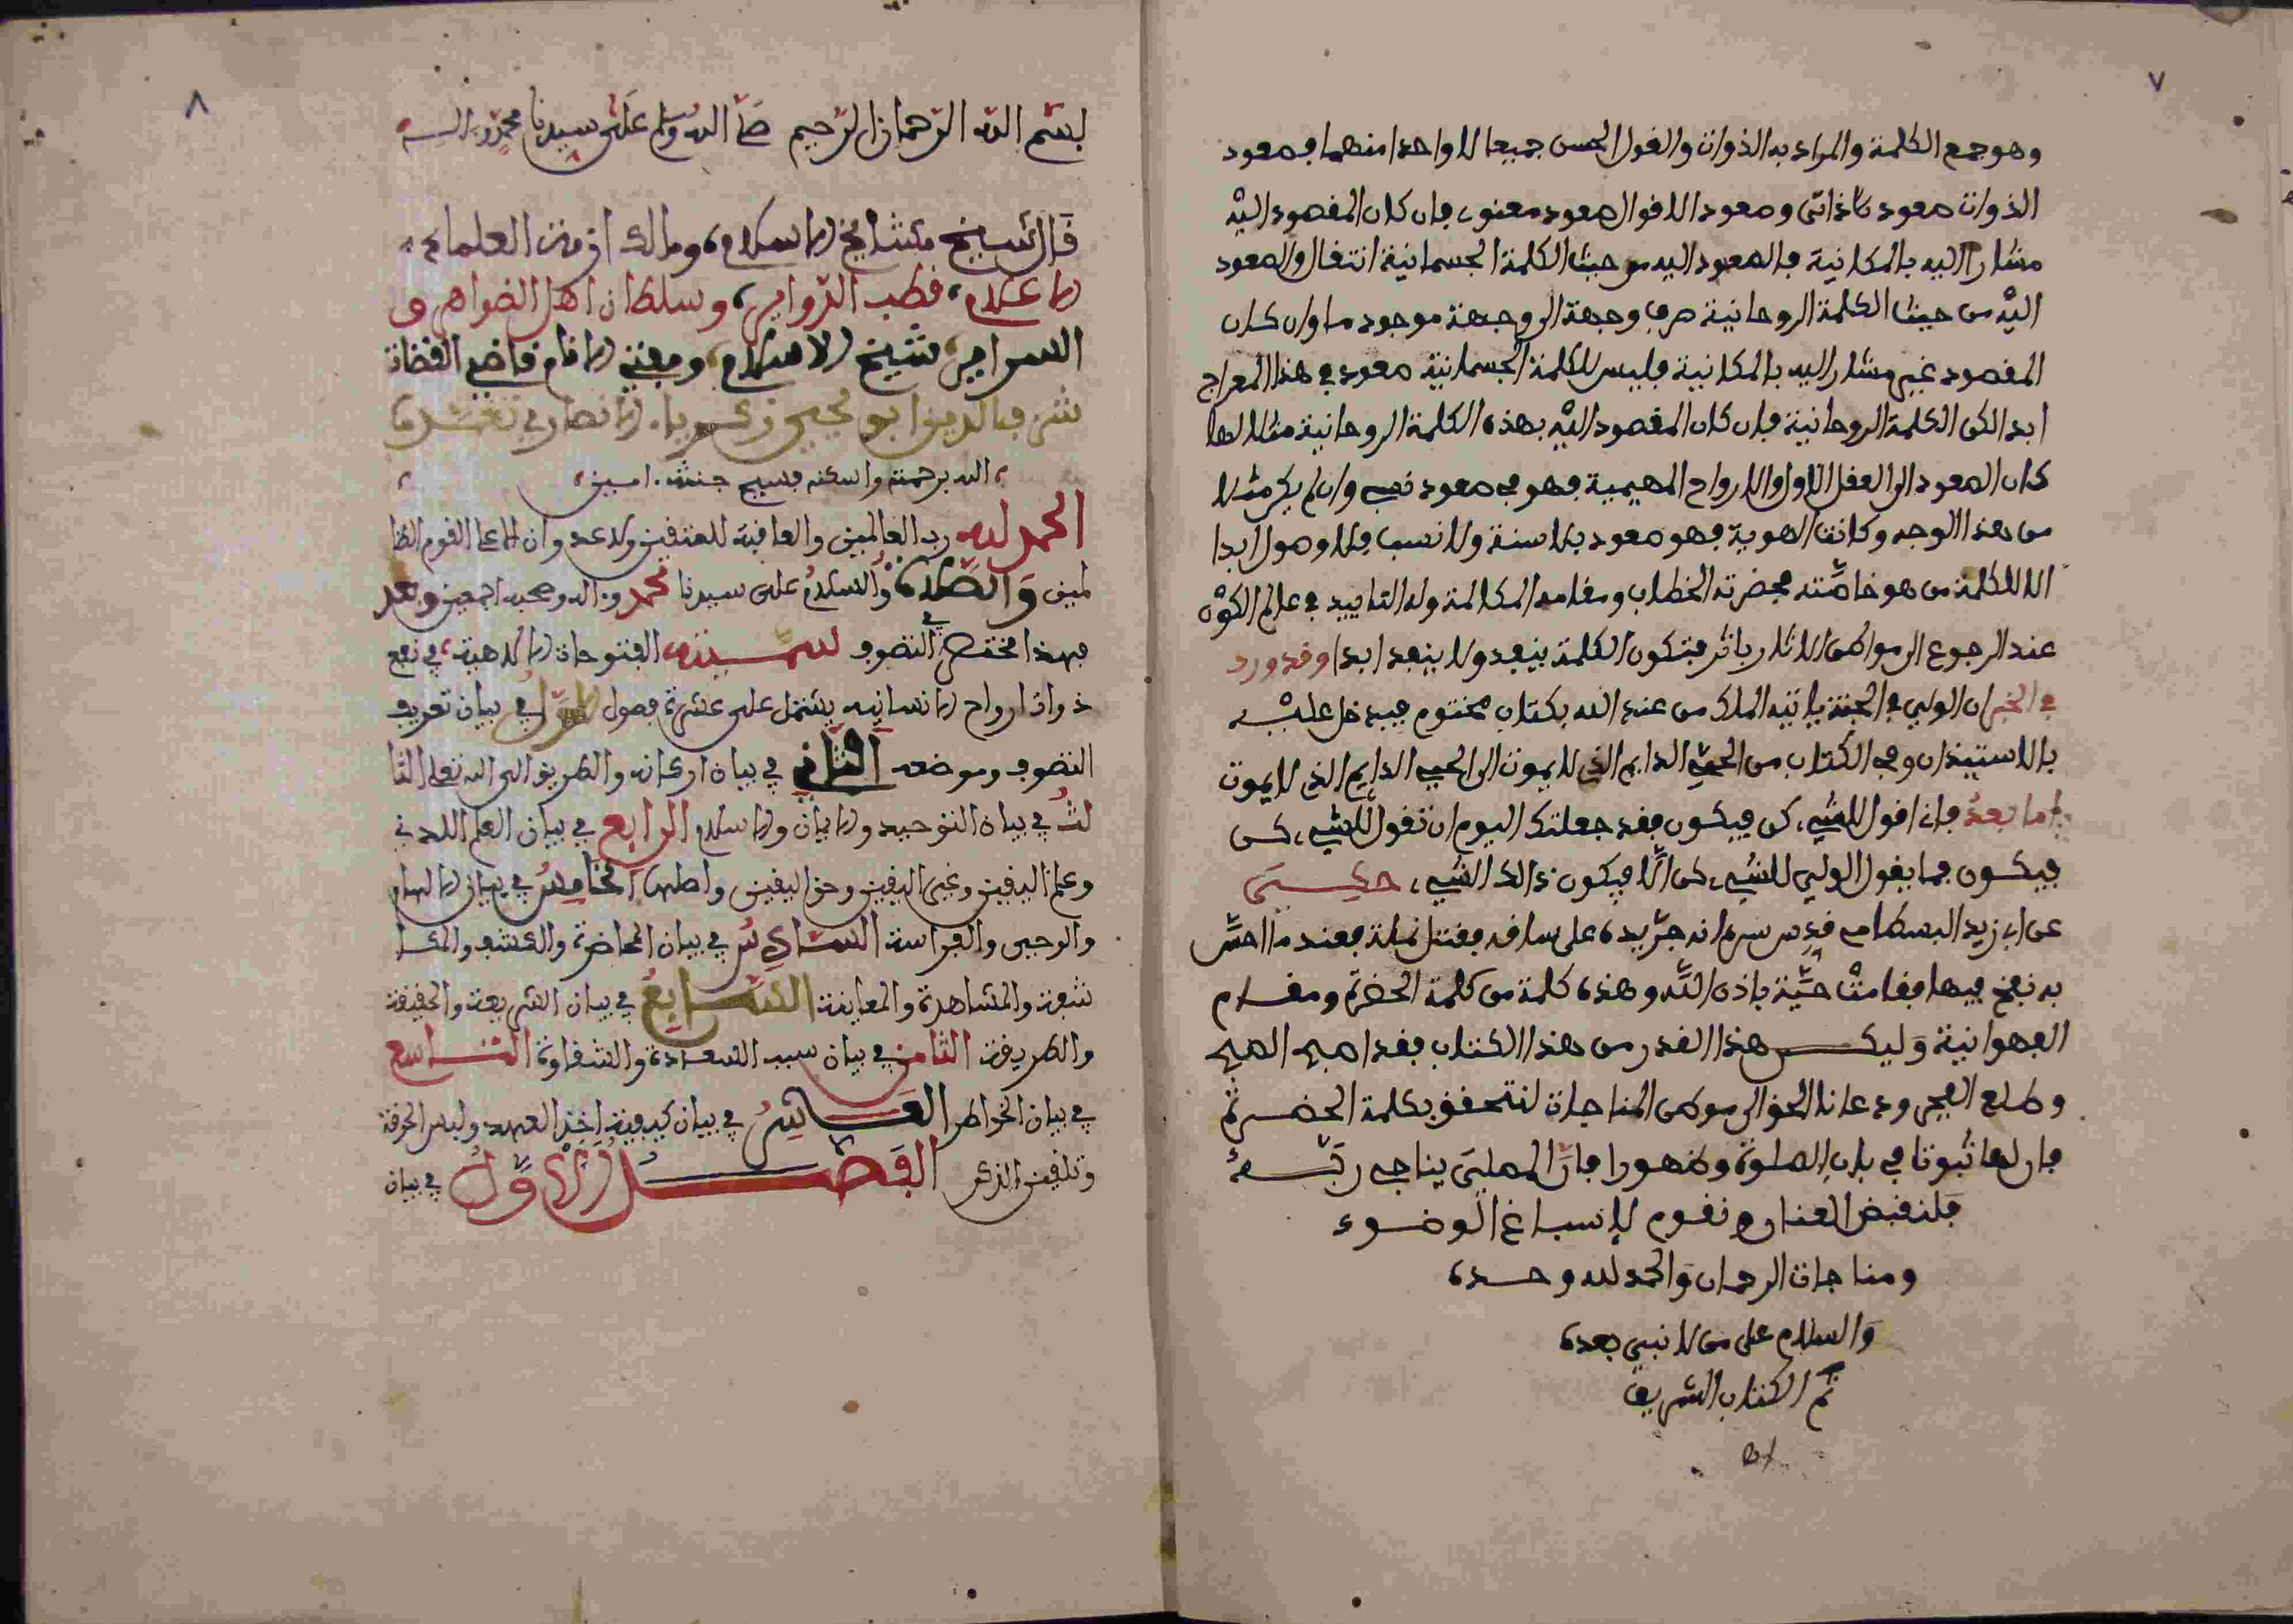 ٧
وهو جمع الكلمة والمراد به الذوات والقول الحسن جميعا لا واحدا منهما فصعود
الذوات صعود ذاتي وصعود الاقوال صعود معنوي فان كان المقصود اليه
مشارا اليه بالمكانية فالصعود اليه من حيث الكلمة الجسمانية انتقال والصعود
اليه من حيث الكلمة الروحانية صرف وجهة الى وجهة موجود ما وان كان
المقصود غير مشار اليه بالمكانية فليس للكلمة الجسمانية صعود في هذا المعراج
ابدا لكن الكلمة الروحانية فان كان المقصود اليه بهذه الكلمة الروحانية مثلا لها
كان الصعود الى العقل الاول والارواح المهيمية فهو في صعود نصب وان لم يكن مثلا
من هذا الوجه وكانت الهوية فهو صعود بلا سنة ولا نسب فلا وصول ابدا
الا للكلمة من هو خاصته محضرته الخطاب ومقامه المكالمة وله التاييد في عالم الكون
عند الرجوع الى مواطن الاثار باثر فتكون الكلمة ينبعد ولا ينبعد ابدا وقد ورد
في الخبر ان الولي في الجنة ياتيه الملك من عند الله بكتاب مختوم فيدخل عليه
بالاستيذان وفي الكتاب من الحي الدايم الذي لا يموت الى الحي الدايم الذي لا يموت
اما بعد فاني اقول للشيء كن فيكون فقد جعلتك اليوم ان تقول للشيء كن
فيكون فما يقول الولي للشيء كن الا فيكون ذالك الشيء حكي
عن ابي زيد البسطامي قدس سره انه جر يده على ساقه فقتل نملة فعندما احس
به نفخ فيها فقامت حية باذن الله وهذه كلمة من كلمة الحضرة ومقام
الفهوانية وليكن هذا القدر من هذا الكتاب فقد اصبح الصبح
وطلع الفجر ودعانا الحق الى موطن المناجاة لنتحقق بكلمة الحضرة
فان لها ثبوتا في باب الصلوة وظهورا فان المصلي يناجي ربه
فلنقبض العنان ونقوم لاسباغ الوضوء
ومناجات الرحمان والحمد لله وحده
والسلام على من لا نبي بعده
تم الكتاب الشريف
٨
بسم الله الرحمان الرحيم صلى الله وسلم على سيدنا محمد واله
قال شيخ مشايخ الاسلام ومالك ازمة العلماء
الاعلام قطب الدواير وسلطان اهل الضواهر و
السراير شيخ الاسلام ومفتي الانام قاضي القضاة
شرف الدين ابو يحيى زكرياء الانصاري تغمده
الله برحمته واسكنه فسيح جنته امين
الحمد لله رب العالمين والعاقبة للمتقين ولا عدوان الا على القوم الظا
لمين والصلاة والسلام على سيدنا محمد واله وصحبه اجمعين وبعد
فهذا مختصر في التصوف سميته الفتوحات الالاهية في نفع
ذوات ارواح الانسانية يشتمل على عشرة فصول الاول في بيان تعريف
التصوف وموضعه الثاني في بيان اركانه والطريق الى الله تعلى الثا
لث في بيان التوحيد والايمان والاسلام الرابع في بيان العلم اللدني
وعلم اليقين وعين اليقين وحق اليقين واصلها الخامس في بيان الالهام
والوحي والفراسة السادس في بيان المحاضرة والكشف والمكا
شفة والمشاهدة والمعاينة السابع في بيان الشريعة والحقيقة
والطريقة الثامن في بيان سبب السعادة والشقاوة التاسع
في بيان الخواطر العاشر في بيان كيفية اخذ العهد ولبس الخرقة
وتلقين الذكر الفصل الاول في بيان